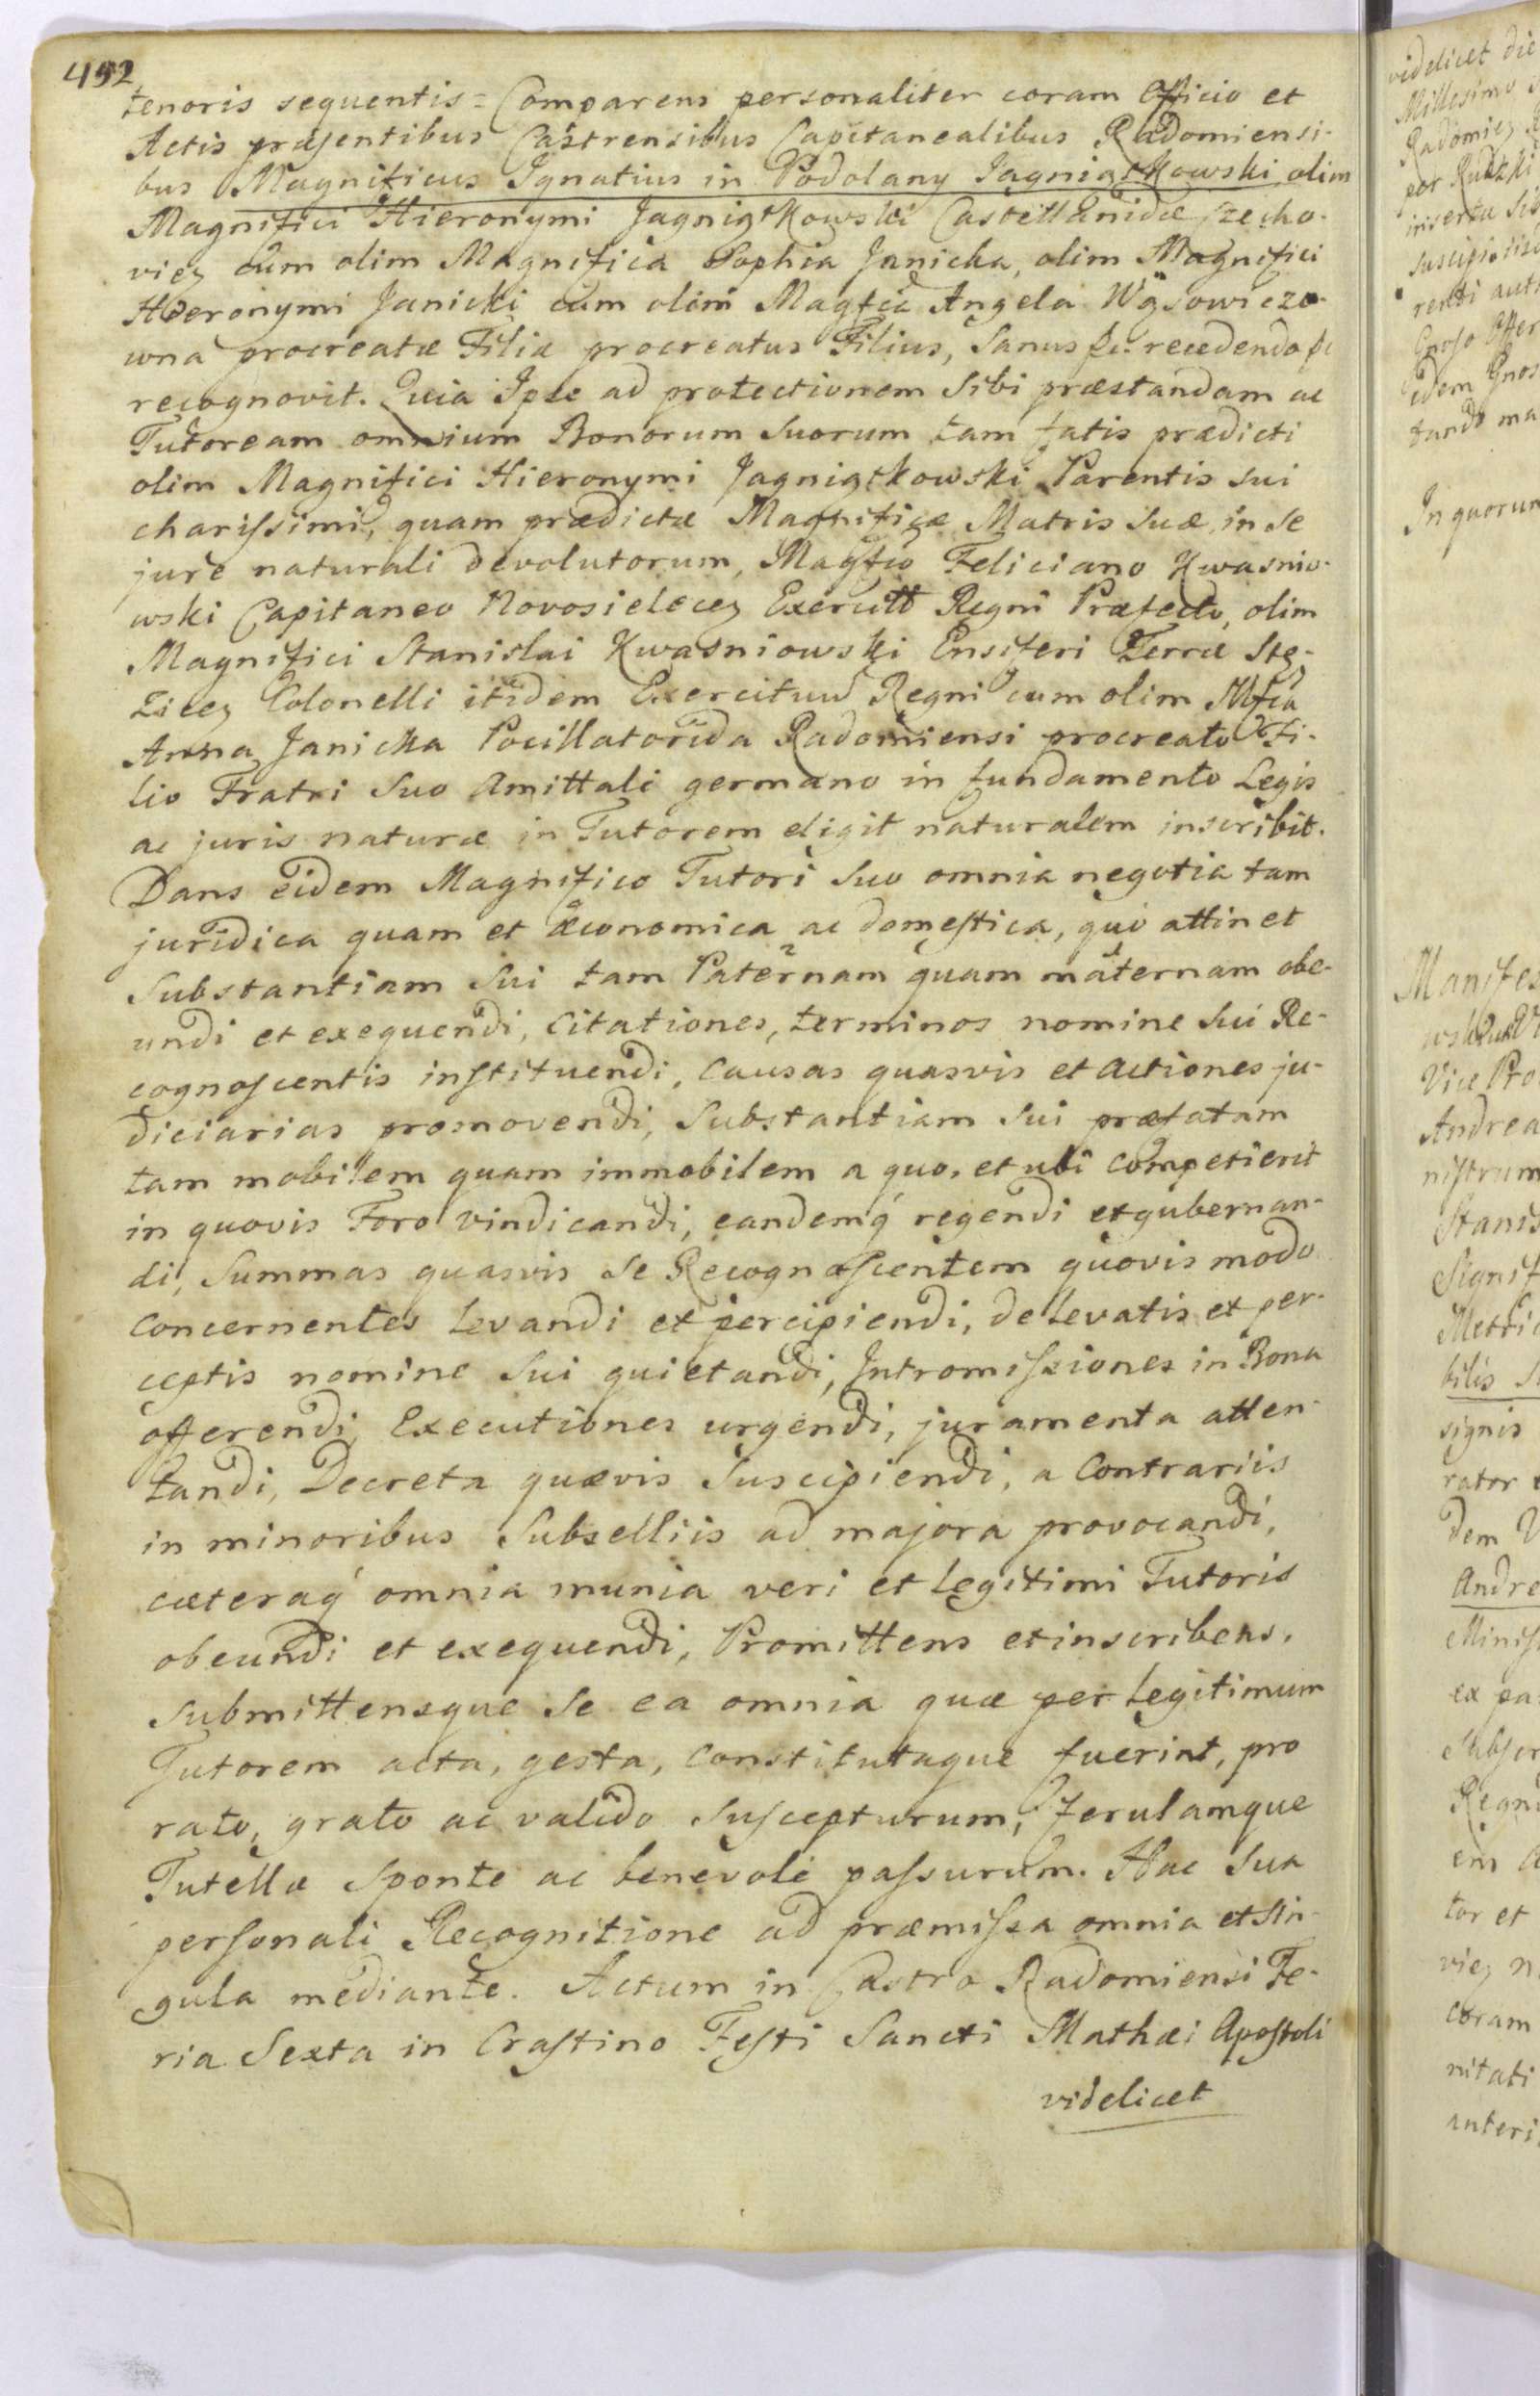 492
tenoris sequentis = Comparens personaliter coram Officio et
Actis præsentibus Castrensibus Capitanealibus Radomiensi-
bus Magnificus Ignatius in Podolany Jagniątkowski olim
Magnifici Hieronymi Jagniątkowski Castellanidæ Czecho-
viez cum olim Magnifica Sophia Janicka, olim Magnifici
Hieronymi Janicki cum olim Magfca Angela Wąsowiczo-
wna procreatæ Filia procreatus Filius, Sanus &c: recedendo &c
recognovit. Quia Ipse ad protectionem Sibi præstandam ac
Tutoream omnium Bonorum Suorum tam fatis prædicti
olim Magnifici Hieronymi Jagniątkowski Parentis sui
charissimi, quam prædictæ Magnificæ Matris suæ in se
jure naturali devolutorum, Magfco Feliciano Kwasnio-
wski Capitaneo Novosielecez Exercitt Regni Præfecto, olim
Magnifici Stanislai Kwasniowski Ensiferi Terræ Stę-
zicez Colonelli itidem Exercituu Regni cum olim Mfca
Anna Janicka Pocillatorida Radomiensi procreato Fi-
lio Fratri suo Amittali germano in fundamento Legis
ac juris naturæ in Tutorem eligit naturalem inscribit.
Dans eidem Magnifico Tutori suo omnia negotia tam
juridica quam et æconomica ac domestica, quo attinet
Substantiam Sui tam Paternam quam maternam obe-
undi et exequendi, Citationes, terminos nomine Sui Re-
cognoscentis instituendi, Causas quasvis et actiones ju-
diciarias promovendi, Substantiam Sui præfatam
tam mobilem quam immobilem a quo, et ubi competierit
in quovis Foro vindicandi, eandemq́ regendi et gubernan-
di, Summas quasvis Se Recognoscentem quovis modo
concernentes levandi et percipiendi, de levatis et per-
ceptis nomine Sui quietandi, Intromissiones in Bona
offerendi, Executiones urgendi, juramenta atten-
tandi, Decreta quævis Suscipiendi, a Contrariis
in minoribus Subselliis ad majora provocandi,
cæteraq́ omnia munia veri et legitimi Tutoris
obeundi et exequendi, Promittens et inscribens,
submittensque Se ea omnia quæ per Legitimum
Tutorem acta, gesta, constitutaque fuerint, pro
rato, grato ac valido suscepturum, ferulamque
Tutellæ sponte ac benevole passurum. Hac Sua
personali Recognitione ad præmissa omnia et sin-
gula mediante. Actum in Castro Radomiensi Fe-
ria Sexta in Crastino Festi Sancti Mathæi Apostoli
videlicet
videlicet die
Millesimo
Radomiez
per
inserta
rendi
tando ma
In quorum
Manifes
Vice Pro
Andrea
nistrum
Stanis
Signif
Metric
bilis
signis
rator
dem
Andre
Minis
ex pa
Subscr
Regni
em
tor et
viez n
coram
nitati
anteri